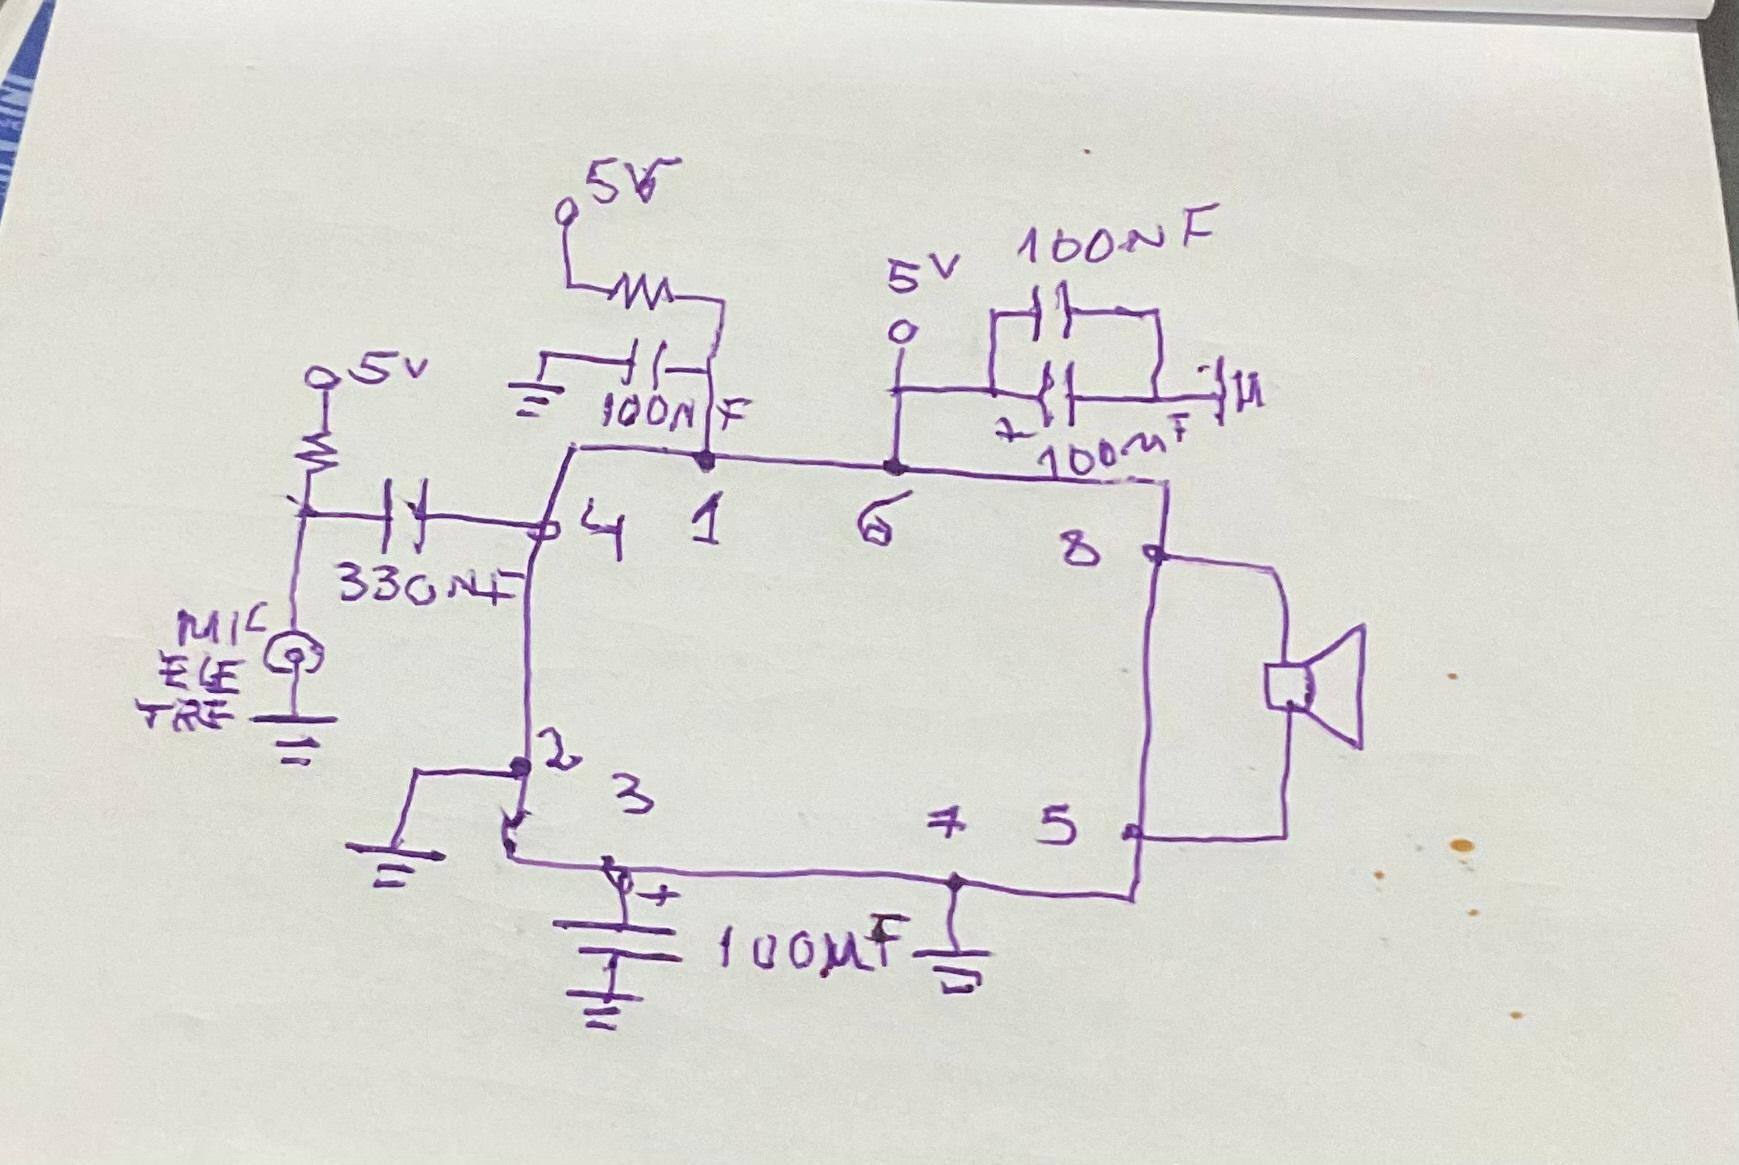 5V
5V
100NF
5V
100NF
+
100µF
4
1
6
8
330NF
MIC
ELE
TRE
2
3
7
5
+
100µF